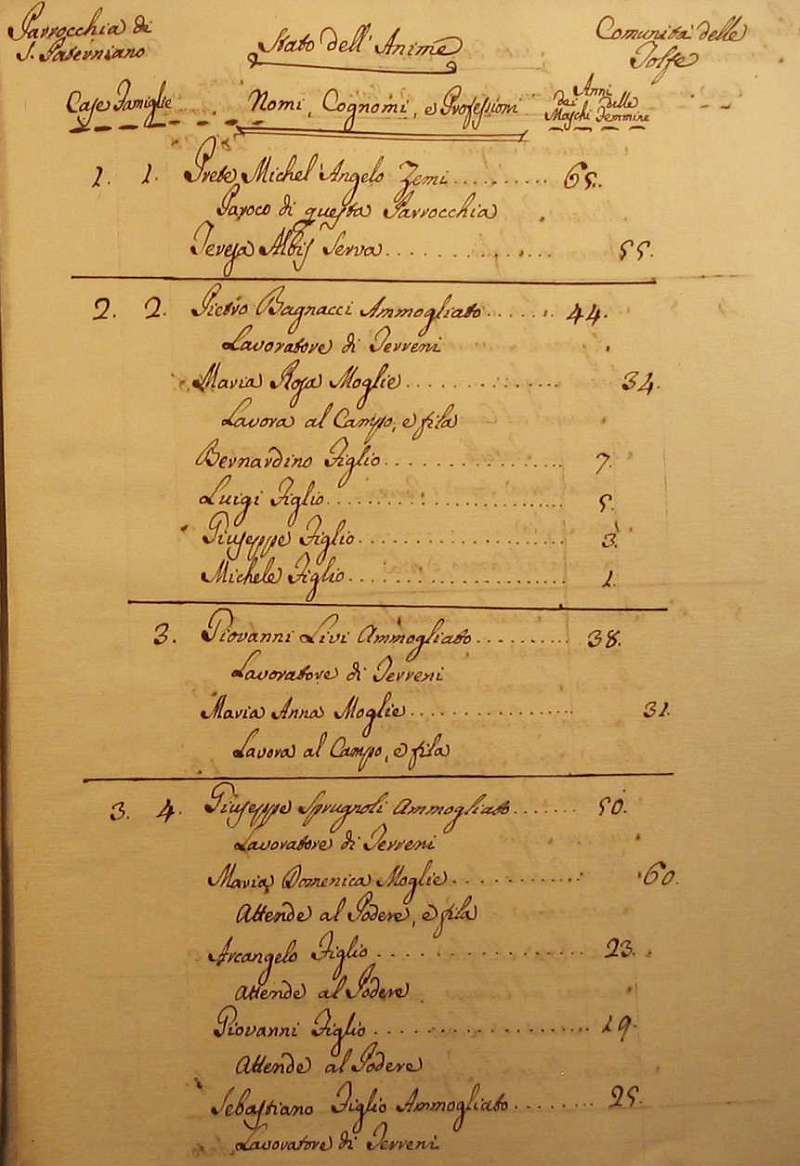 Parrocchia di
S. Paterniano
Stato dell'Anime
Comunità delle
Tolfe
Case Famiglie
Nomi, Cognomi, e Professioni
Anni
dei delle
Maschi Femmine
1. 1. Prete Michel'Angelo Zemi 65.
Paroco di questa Parrocchia
Teresa Serva 55.
2. 2. Pietro Bagnacci Ammogliato 44.
Lavoratore di Terreni
Maria Rosa Moglie 34.
Lavora al Campo, e fila
Bernardino Figlio 7.
Luigi Figlio 5.
Giuseppe Figlio 3.
Michele Figlio 1.
3. Giovanni Livi Ammogliato 38.
Lavoratore di Terreni
Maria Anna Moglie 31.
Lavora al Campo, e fila
3. 4. Giuseppe Sprugnoli Ammogliato 50.
Lavoratore di Terreni
Maria Domenica Moglie 60.
Attende al Podere, e fila
Arcangelo Figlio 23.
Attende al Podere
Giovanni Figlio 19.
Attende al Podere
Sebastiano Figlio Ammogliato 25.
Lavoratore di Terreni